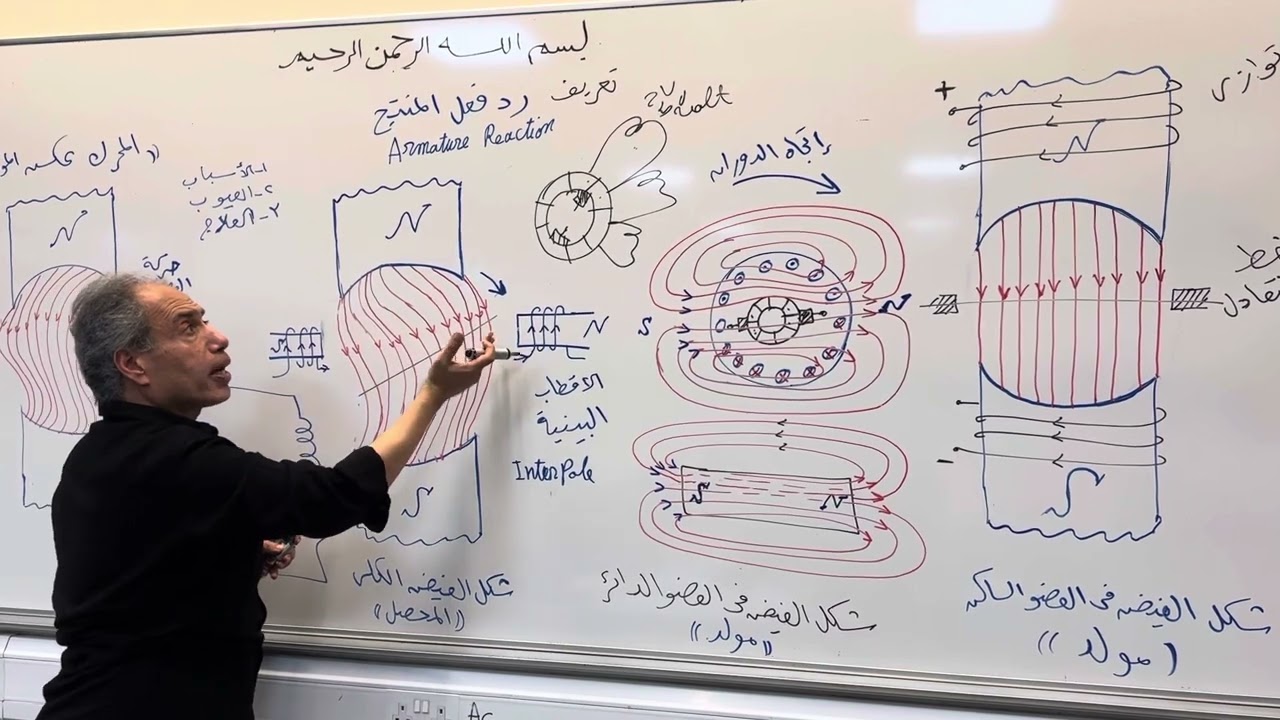 بسم الله الرحمن الرحيم
تعريف رد فعل المنتج
Armature Reaction
((المحرك عكس
١-الأسباب
٢-العيوب
٣-العلاج
حركة
N
N
S
الأقطاب
البينية
InterPole
N
S
شكل الفيض الكلى
((المحصل))
volt
اتجاه الدوران
S
N
S
N
شكل الفيض فى العضو الدائر
((مولد))
توازى
+
N
خط
تعادل
-
S
شكل الفيض فى العضو الساكن
(مولد))